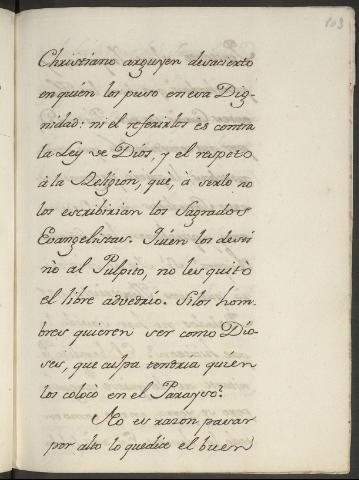 103
Christiano arguyen desacierto
en quien los puso en esa Dig-
nidad: ni el referirlos es contra
la Ley de Dios, y el respeto
à la Religión, què, à serlo no
los escribirian los Sagrados
Evangelistas. Quien los desti
nò al Pulpito, no les quitò
el libre advedrío. Si los hom-
bres quieren ser como Dio-
ses, que culpa tendria quien
los colocò en el Parayso?
No es razon pasar
por alto lo que dice el buen